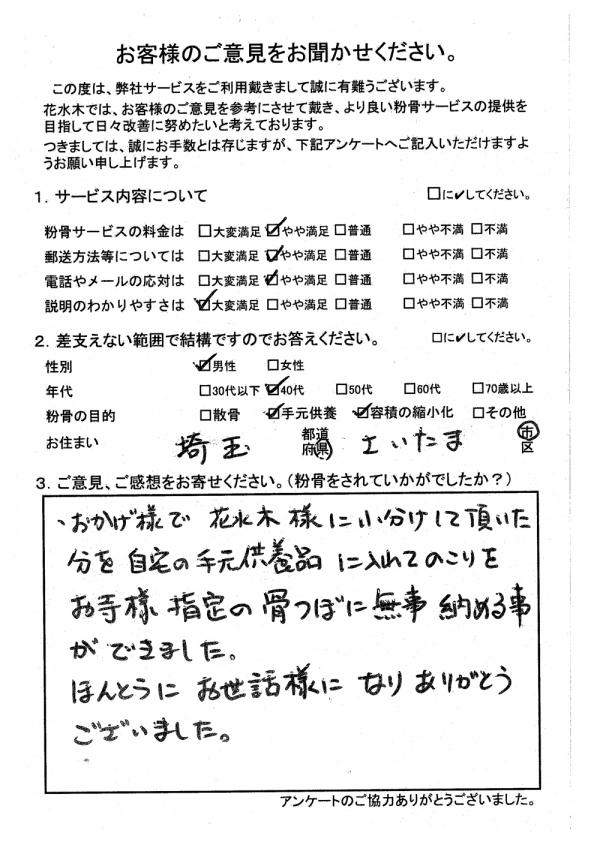 お客様のご意見をお聞かせください。
この度は、弊社サービスをご利用戴きまして誠に有難うございます。
花水木では、お客様のご意見を参考にさせて戴き、より良い粉骨サービスの提供を
目指して日々改善に努めたいと考えております。
つきましては、誠にお手数とは存じますが、下記アンケートへご記入いただけますよ
うお願い申し上げます。
1．サービス内容について □に✓してください。
粉骨サービスの料金は □大変満足 ☑やや満足 □普通 □やや不満 □不満
郵送方法等については □大変満足 ☑やや満足 □普通 □やや不満 □不満
電話やメールの応対は □大変満足 ☑やや満足 □普通 □やや不満 □不満
説明のわかりやすさは ☑大変満足 □やや満足 □普通 □やや不満 □不満
2．差支えない範囲で結構ですのでお答えください。 □に✓してください。
性別 ☑男性 □女性
年代 □30代以下 ☑40代 □50代 □60代 □70歳以上
粉骨の目的 □散骨 ☑手元供養 ☑容積の縮小化 □その他
お住まい 埼玉 都道府県 さいたま 市区
3．ご意見、ご感想をお寄せください。（粉骨をされていかがでしたか？）
、おかげ様で 花水木様に小分けして頂いた
分を自宅の手元供養品に入れてのこりを
お寺様指定の骨つぼに無事納める事
ができました。
ほんとうにお世話様になりありがとう
ございました。
アンケートのご協力ありがとうございました。